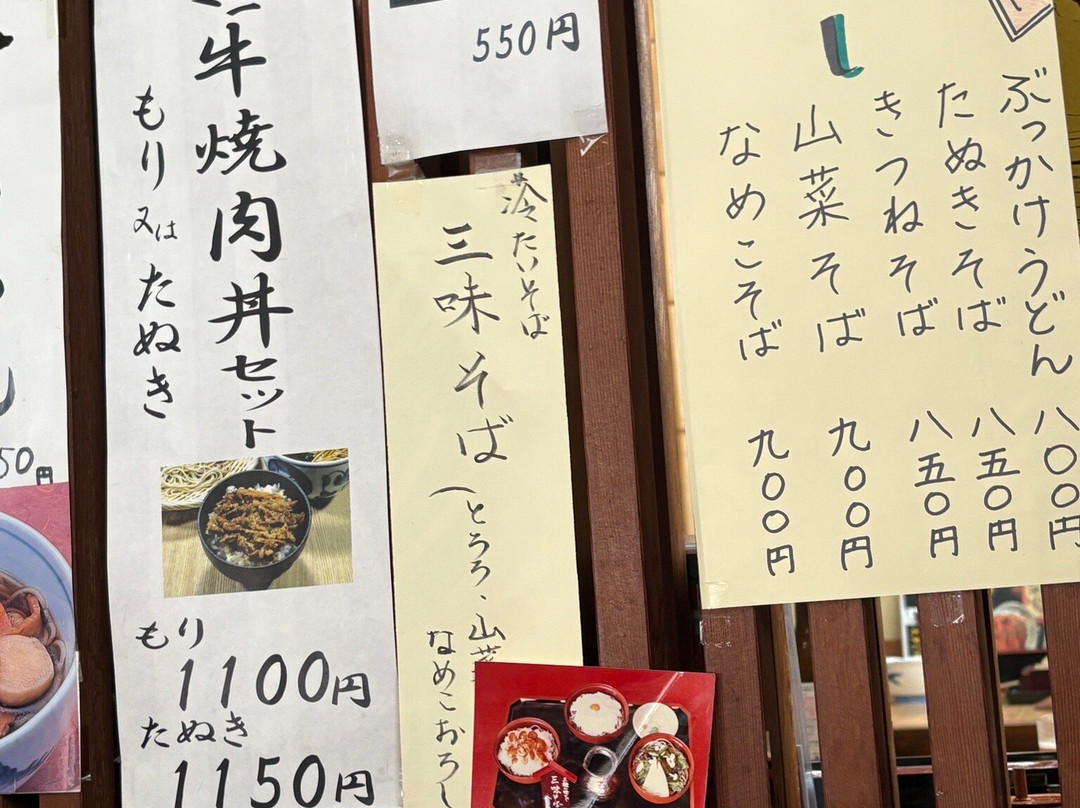 ぶっかけうどん 八〇〇円
たぬきそば 八五〇円
きつねそば 八五〇円
山菜そば 九〇〇円
なめこそば 九〇〇円
550円
冷たいそば
三味そば(とろろ、山菜
なめこおろし
牛焼肉丼セット
もり又はたぬき
もり
1100円
たぬき
1150円
50円